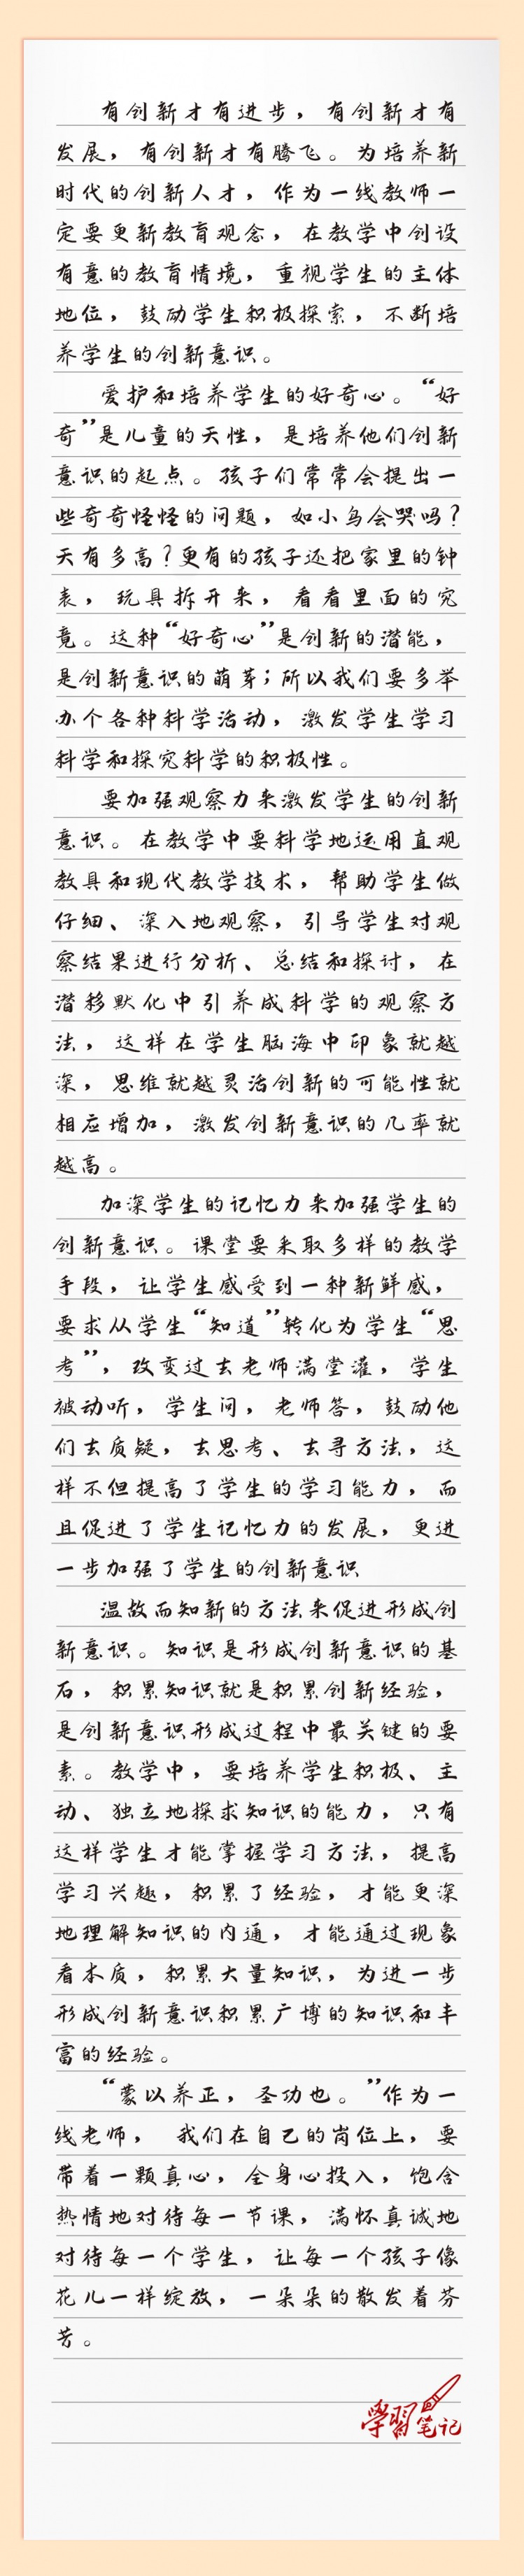 有创新才有进步，有创新才有
发展，有创新才有腾飞。为培养新
时代的创新人才，作为一线教师一
定要更新教育观念，在教学中创设
有意的教育情境，重视学生的主体
地位，鼓动学生积极探索，不断培
养学生的创新意识。
爱护和培养学生的好奇心。“好
奇”是儿童的天性，是培养他们创新
意识的起点。孩子们常常会提出一
些奇奇怪怪的问题，如小鸟会哭吗？
天有多高？更有的孩子还把家里的钟
表，玩具拆开来，看看里面的究
竟。这种“好奇心”是创新的潜能，
是创新意识的萌芽；所以我们要多举
办个各种科学活动，激发学生学习
科学和探究科学的积极性。
要加强观察力来激发学生的创新
意识。在教学中要科学地运用直观
教具和现代教学技术，帮助学生做
仔细、深入地观察，引导学生对观
察结果进行分析、总结和探讨，在
潜移默化中引养成科学的观察方
法，这样在学生脑海中印象就越
深，思维就越灵活创新的可能性就
相应增加，激发创新意识的几率就
越高。
加深学生的记忆力来加强学生的
创新意识。课堂要采取多样的教学
手段，让学生感受到一种新鲜感，
要求从学生“知道”转化为学生“思
考”，改变过去老师满堂灌，学生
被动听，学生问，老师答，鼓动他
们去质疑，去思考、去寻方法，这
样不但提高了学生的学习能力，而
且促进了学生记忆力的发展，更进
一步加强了学生的创新意识
温故而知新的方法来促进形成创
新意识。知识是形成创新意识的基
石，积累知识就是积累创新经验，
是创新意识形成过程中最关键的要
素。教学中，要培养学生积极、主
动、独立地探求知识的能力，只有
这样学生才能掌握学习方法，提高
学习兴趣，积累了经验，才能更深
地理解知识的内通，才能通过现象
看本质，积累大量知识，为进一步
形成创新意识积累广博的知识和丰
富的经验。
“蒙以养正，圣功也。”作为一
线老师，我们在自己的岗位上，要
带着一颗真心，全身心投入，饱含
热情地对待每一节课，满怀真诚地
对待每一个学生，让每一个孩子像
花儿一样绽放，一朵朵的散发着芬
芳。
學習笔记